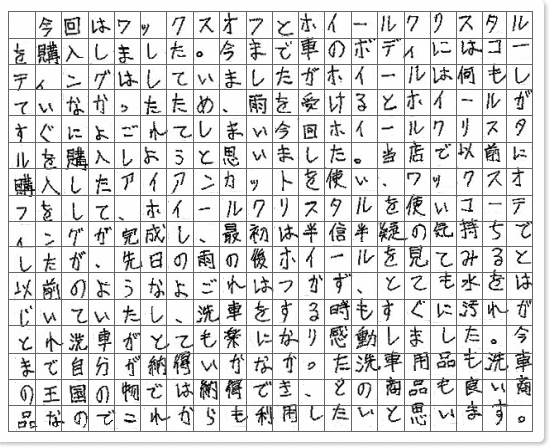 今回はワックスオフとホイールクリスタル
を購入しました。今まで車のボディにはコー
ティングはしていましたがホイールは何もし
ていなかったため、雨を受けるとホイールが
すぐによごれてしまい今回ホイールクリスタ
ルを購入しようと思いました。当店で以前に
購入したアイアンカットを使い、ワックスオ
フをして、ホイールクリスタルを使いコーテ
ィングが完成し、最初は半信半疑の気持ちで
したが、先日の雨の後ホイールを見てみると
以前のようなよごれはつかず、とても水をは
じいていたし、洗車をする時もすぐに汚れが
とれ洗車がとても楽になり感動しました。今
まで自分が納得いかなかった洗車用品も洗車
の王国の物では納得でき、どの商品も良い商
品なのでこれからも利用したいと思います。